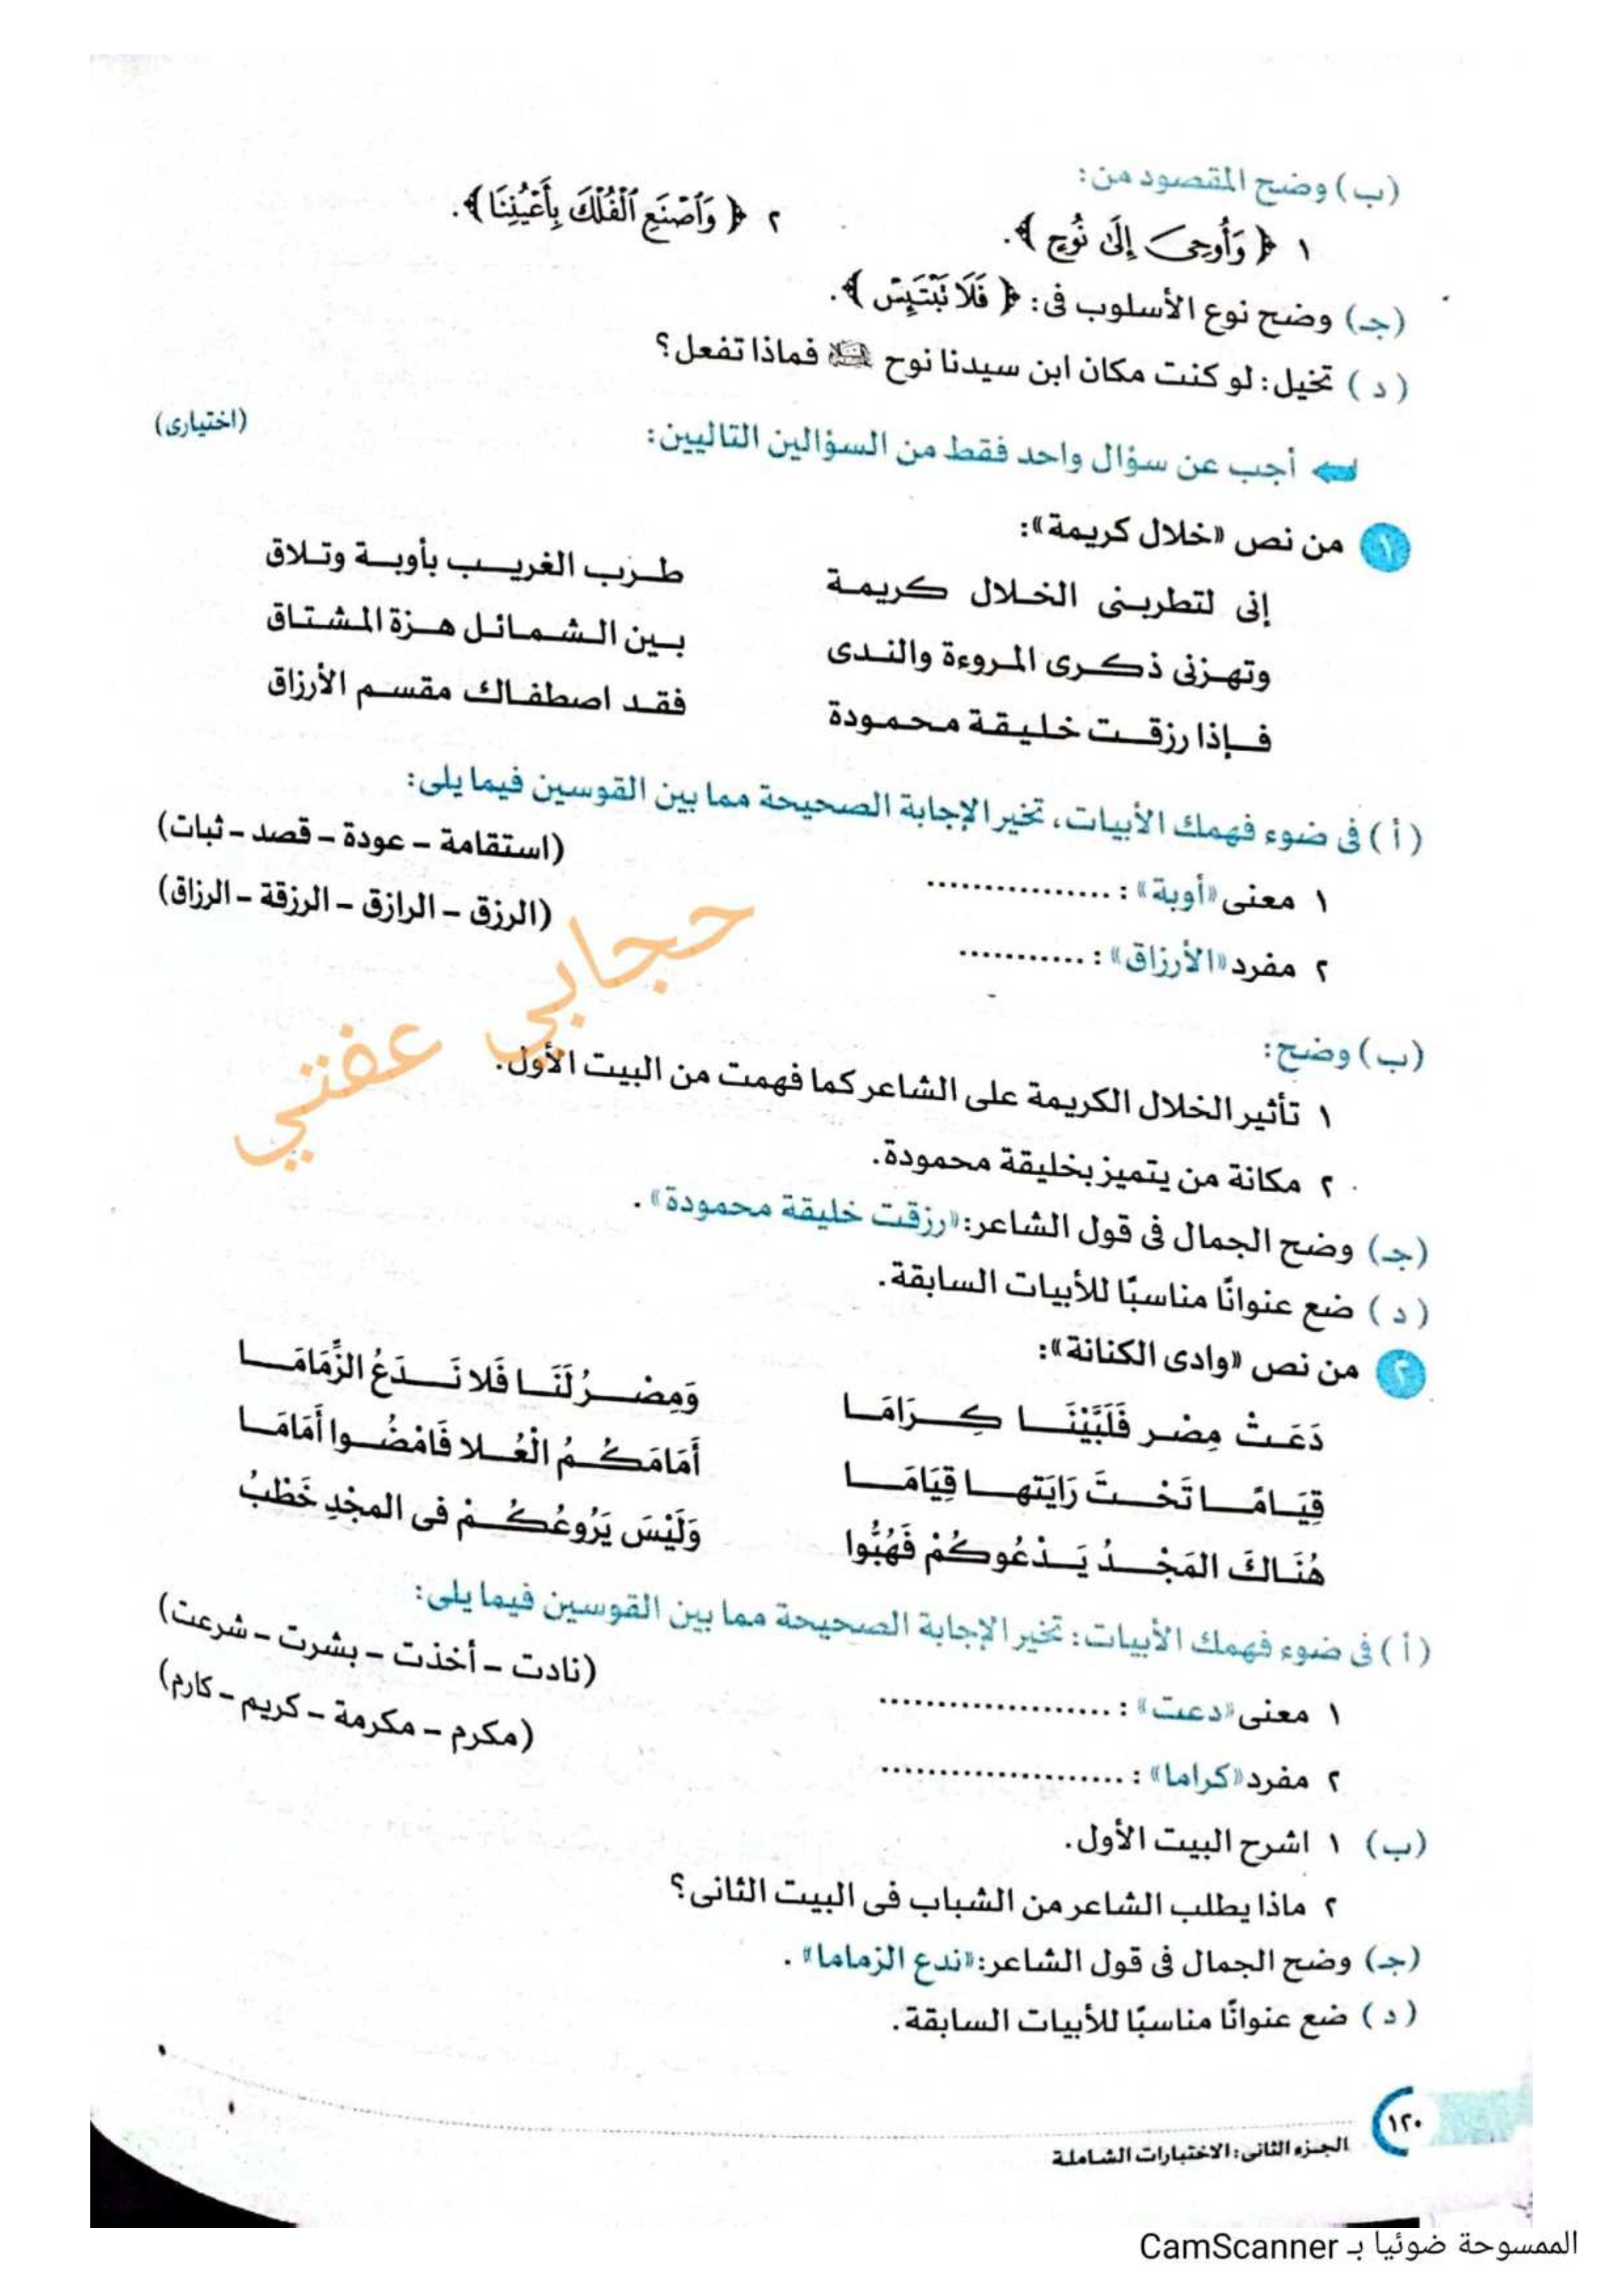 (ب) وضح المقصود من:
١ ﴿ وَأُوحِىَ إِلَىٰ نُوحٍ ﴾. ٢ ﴿ وَٱصْنَعِ ٱلْفُلْكَ بِأَعْيُنِنَا ﴾.
(جـ) وضح نوع الأسلوب فى: ﴿ فَلَا تَبْتَئِسْ ﴾.
(د) تخيل: لو كنت مكان ابن سيدنا نوح عليه السلام فماذا تفعل؟
أجب عن سؤال واحد فقط من السؤالين التاليين: (اختيارى)
١ من نص «خلال كريمة»:
إنى لتطربنى الخلال كريمة طرب الغريب بأوبة وتلاق
وتهزنى ذكرى المروءة والندى بين الشمائل هزة المشتاق
فإذا رزقت خليقة محمودة فقد اصطفاك مقسم الأرزاق
(أ) فى ضوء فهمك الأبيات، تخير الإجابة الصحيحة مما بين القوسين فيما يلى:
١ معنى «أوبة» : ................ (استقامة – عودة – قصد – ثبات)
٢ مفرد «الأرزاق» : ........... (الرزق – الرازق – الرزقة – الرزاق)
(ب) وضح:
١ تأثير الخلال الكريمة على الشاعر كما فهمت من البيت الأول.
٢ مكانة من يتميز بخليقة محمودة.
(جـ) وضح الجمال فى قول الشاعر: «رزقت خليقة محمودة» .
(د) ضع عنوانًا مناسبًا للأبيات السابقة.
٢ من نص «وادى الكنانة»:
دَعَتْ مِصْر فَلَبَّيْنَا كِرَامَا وَمِصْرُ لَنَا فَلا نَدَعُ الزِّمَامَا
قِيَامًا تَحْتَ رَايَتها قِيَامَا أَمَامَكُمُ الْعُلا فَامْضُوا أَمَامَا
هُنَاكَ المَجْدُ يَدْعُوكُمْ فَهُبُّوا وَلَيْسَ يَرُوعُكُمْ فى المجْدِ خَطْبُ
(أ) فى ضوء فهمك الأبيات: تخير الإجابة الصحيحة مما بين القوسين فيما يلى:
١ معنى «دعت» : .................... (نادت – أخذت – بشرت – شرعت)
٢ مفرد «كراما» : ..................... (مكرم – مكرمة – كريم – كارم)
(ب) ١ اشرح البيت الأول.
٢ ماذا يطلب الشاعر من الشباب فى البيت الثانى؟
(جـ) وضح الجمال فى قول الشاعر: «ندع الزماما» .
(د) ضع عنوانًا مناسبًا للأبيات السابقة.
حجابي عفتي
١٢٠
الجزء الثانى: الاختبارات الشاملة
الممسوحة ضوئيا بـ CamScanner